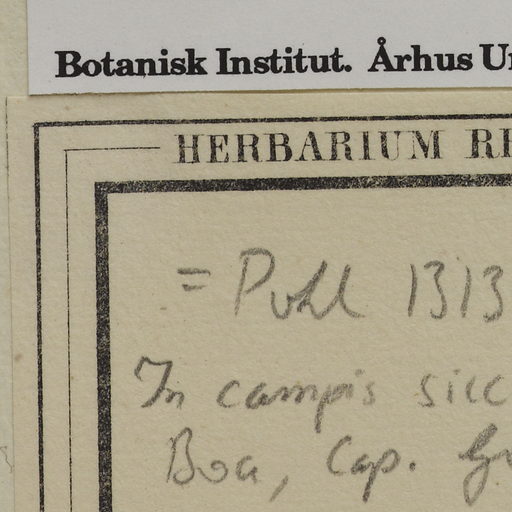 Botanisk Institut. Århus U
HERBARIUM R
= Pohl 1313
In campis sicc
Boa, Cap. G